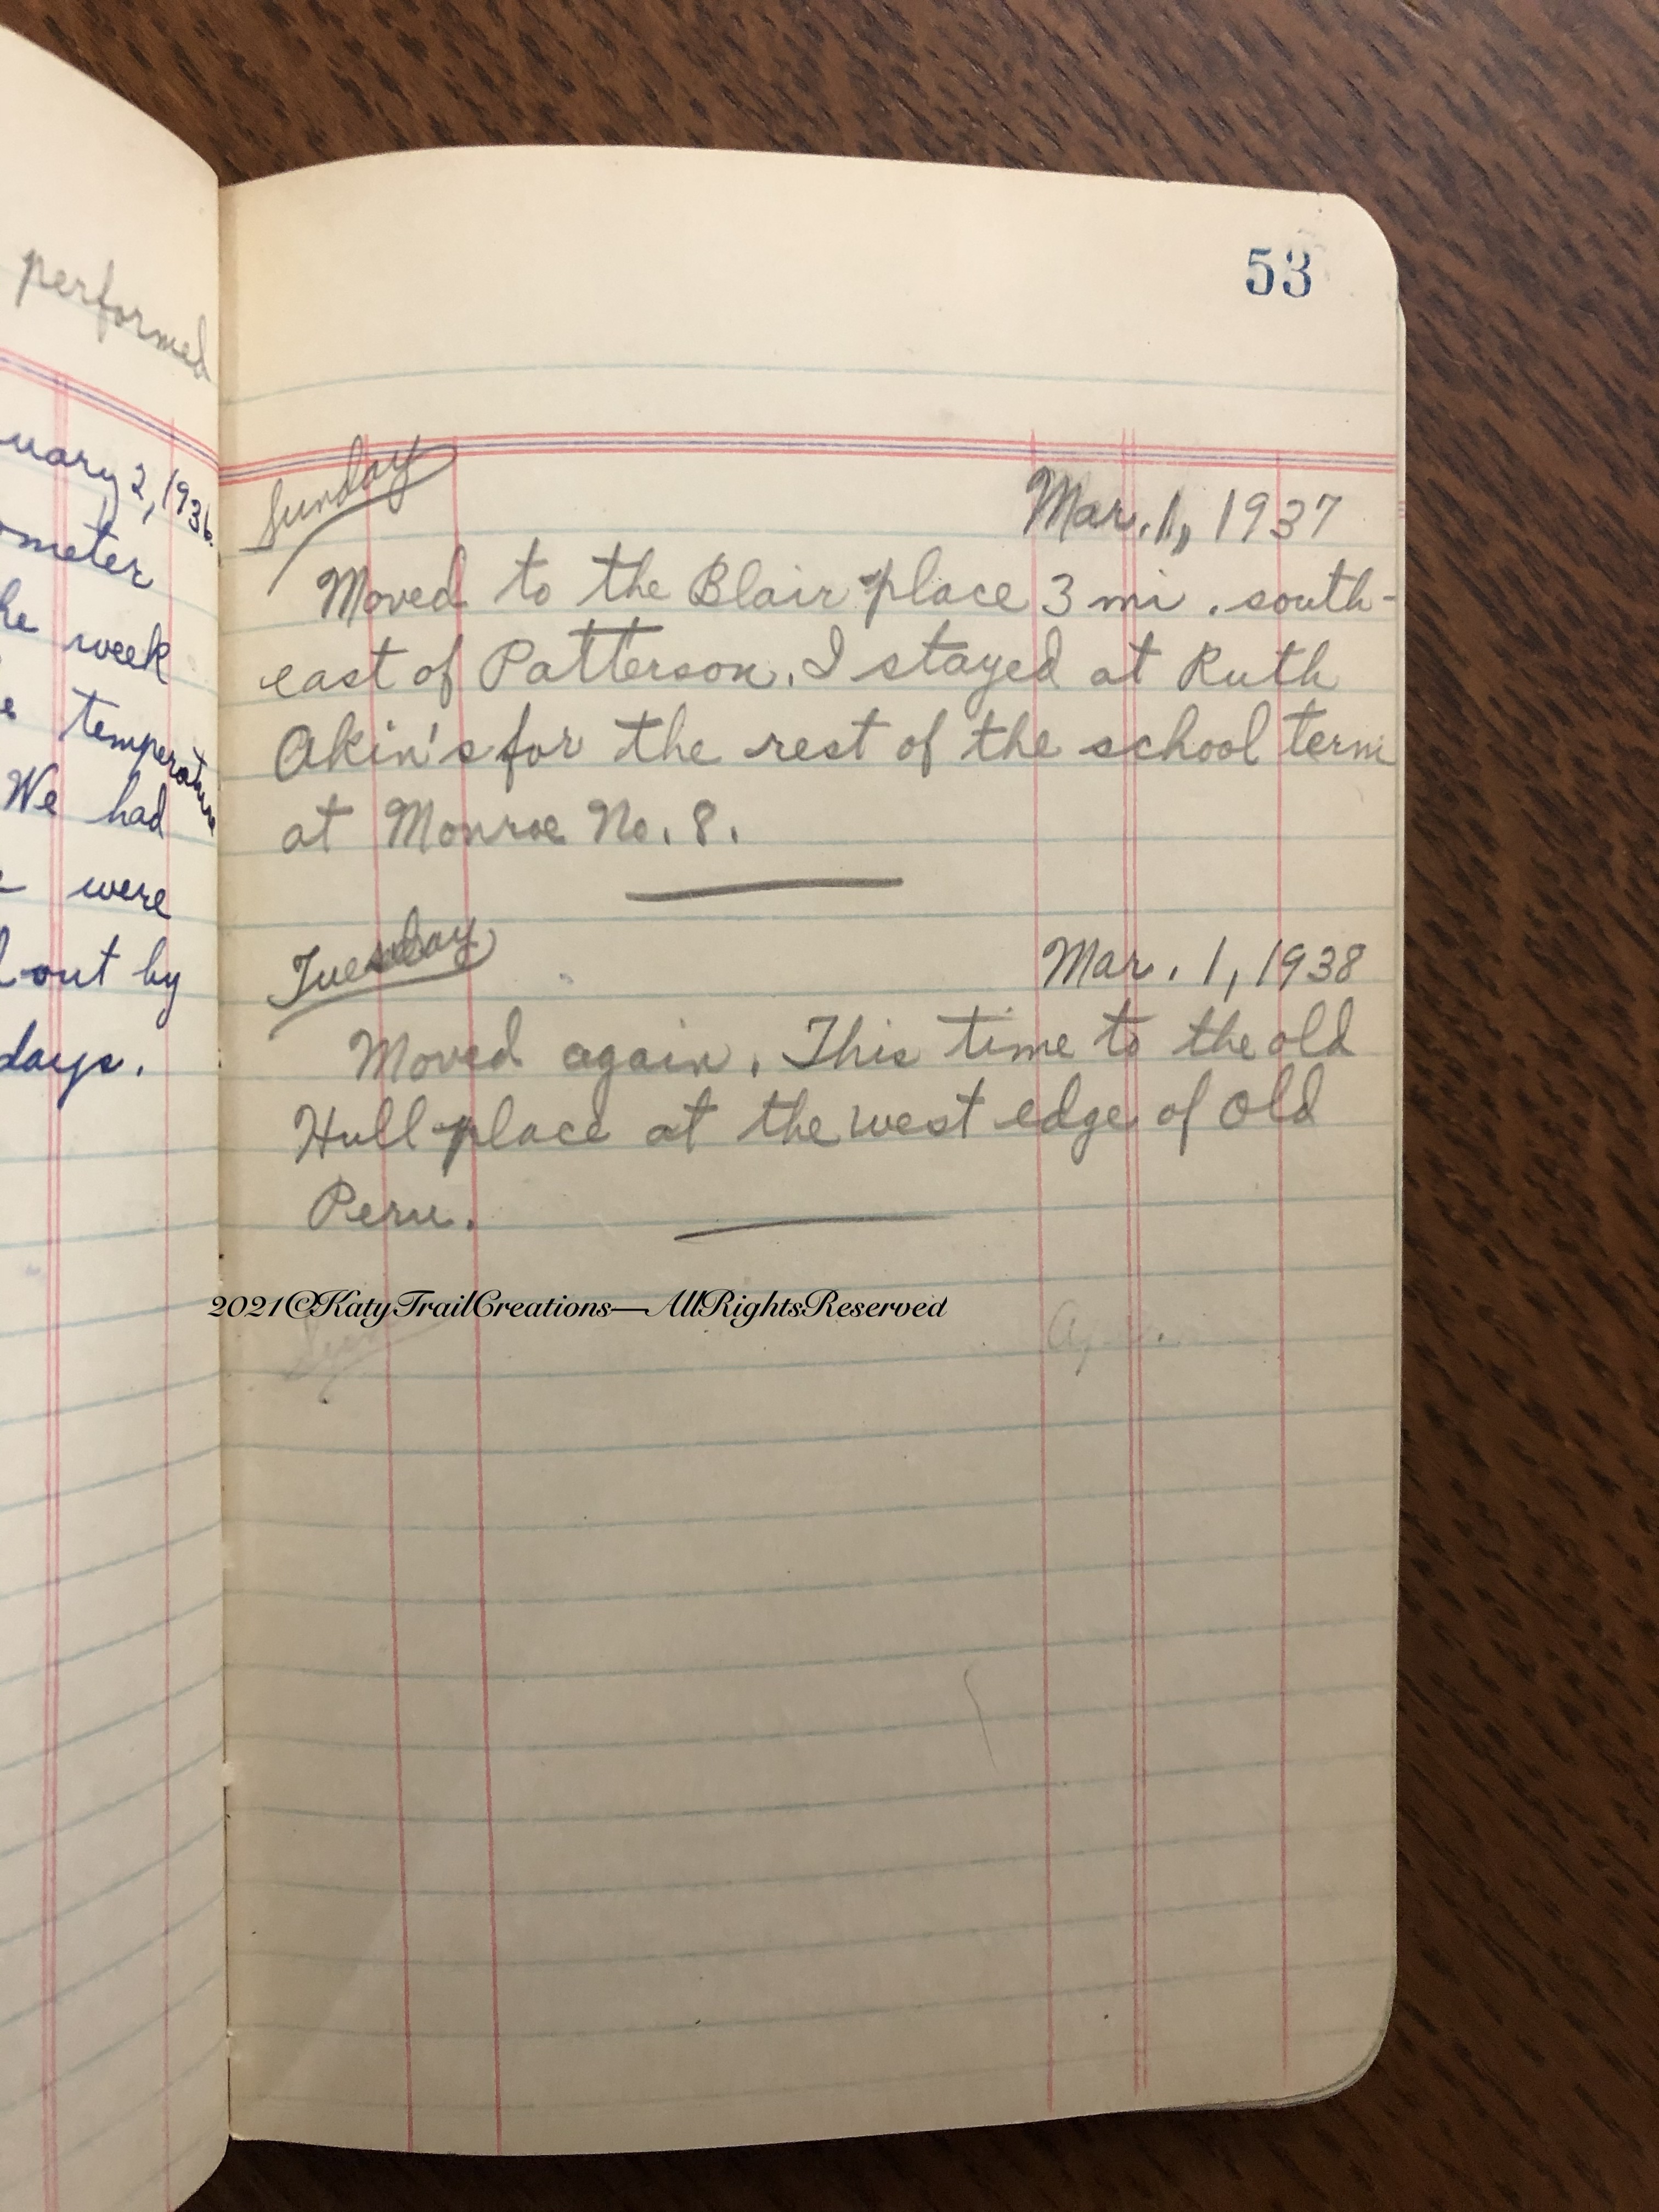 performed
uary 2, 1936.
ometer
he week
e temperature
We had
were
out by
days.
53
Sunday
Mar. 1, 1937
Moved to the Blair place 3 mi. south-
east of Patterson. I stayed at Ruth
Akin's for the rest of the school term
at Monroe No. 8.
Tuesday
Mar. 1, 1938
Moved again. This time to the old
Hull place at the west edge of Old
Peru.
2021©KatyTrailCreations—AllRightsReserved